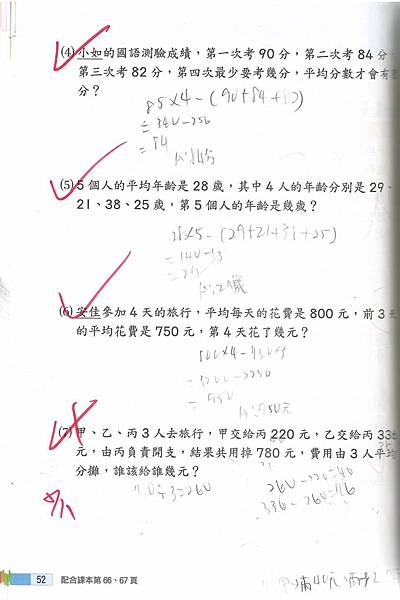 (4) 小如的國語測驗成績，第一次考 90 分，第二次考 84 分，
第三次考 82 分，第四次最少要考幾分，平均分數才會有
分？
85×4-(90+84+82)
=340-256
=84
A:84分
(5) 5 個人的平均年齡是 28 歲，其中 4 人的年齡分別是 29、
21、38、25 歲，第 5 個人的年齡是幾歲？
A:29歲
(6) 安佳參加 4 天的旅行，平均每天的花費是 800 元，前 3 天
的平均花費是 750 元，第 4 天花了幾元？
800×4-750×3
=3200-2250
=950
A:950元
(7) 甲、乙、丙 3 人去旅行，甲交給丙 220 元，乙交給丙 336
元，由丙負責開支，結果共用掉 780 元，費用由 3 人平均
分攤，誰該給誰幾元？
÷3=260
260-220=40
52 配合課本第 66、67 頁